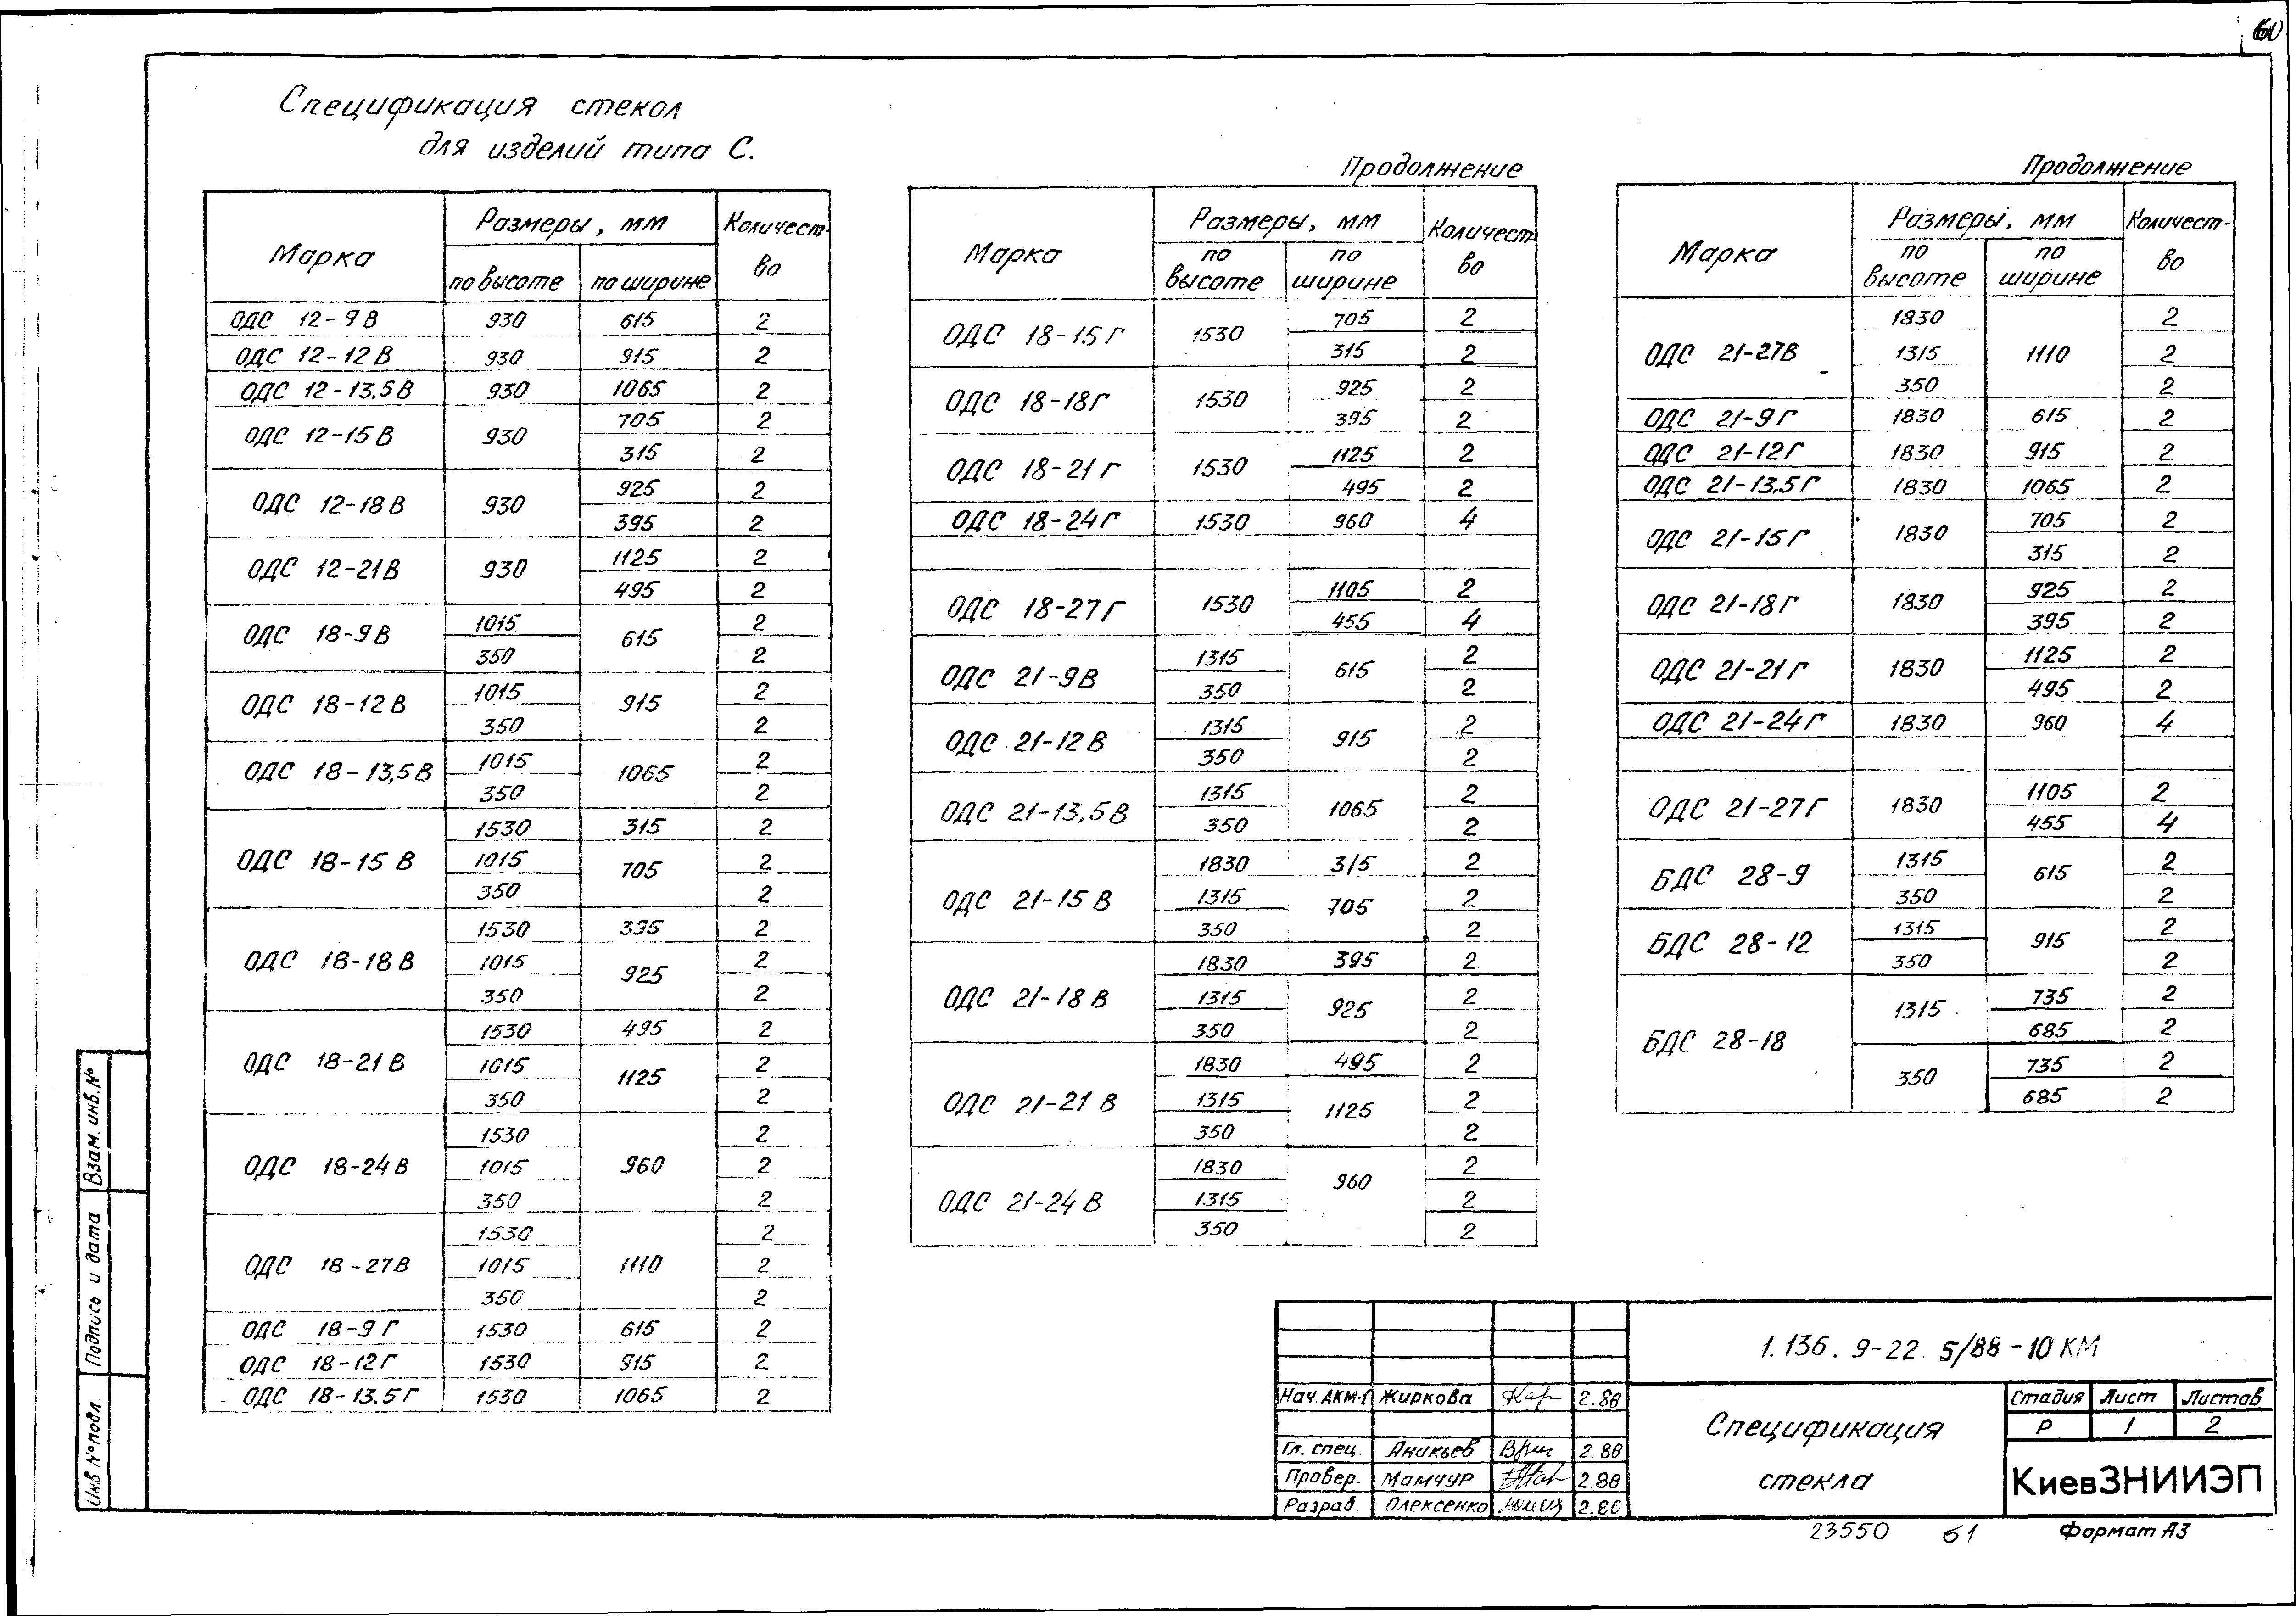 60
Спецификация стекол
для изделий типа С.
Марка
Размеры, мм
Количест-
во
по высоте
по ширине
ОДС 12-9В 930 615 2
ОДС 12-12В 930 915 2
ОДС 12-13,5В 930 1065 2
ОДС 12-15В 930 705 2
315 2
ОДС 12-18В 930 925 2
395 2
ОДС 12-21В 930 1125 2
495 2
ОДС 18-9В 1015 615 2
350 2
ОДС 18-12В 1015 915 2
350 2
ОДС 18-13,5В 1015 1065 2
350 2
ОДС 18-15В 1530 315 2
1015 705 2
350 2
ОДС 18-18В 1530 395 2
1015 925 2
350 2
ОДС 18-21В 1530 495 2
1015 1125 2
350 2
ОДС 18-24В 1530 960 2
1015 2
350 2
ОДС 18-27В 1530 1110 2
1015 2
350 2
ОДС 18-9Г 1530 615 2
ОДС 18-12Г 1530 915 2
ОДС 18-13,5Г 1530 1065 2
Продолжение
Марка
Размеры, мм
Количест-
во
по
высоте
по
ширине
ОДС 18-15Г 1530 705 2
315 2
ОДС 18-18Г 1530 925 2
395 2
ОДС 18-21Г 1530 1125 2
495 2
ОДС 18-24Г 1530 960 4
ОДС 18-27Г 1530 1105 2
455 4
ОДС 21-9В 1315 615 2
350 2
ОДС 21-12В 1315 915 2
350 2
ОДС 21-13,5В 1315 1065 2
350 2
ОДС 21-15В 1830 315 2
1315 705 2
350 2
ОДС 21-18В 1830 395 2
1315 925 2
350 2
ОДС 21-21В 1830 495 2
1315 1125 2
350 2
ОДС 21-24В 1830 960 2
1315 2
350 2
Продолжение
Марка
Размеры, мм
Количест-
во
по
высоте
по
ширине
ОДС 21-27В 1830 1110 2
1315 2
350 2
ОДС 21-9Г 1830 615 2
ОДС 21-12Г 1830 915 2
ОДС 21-13,5Г 1830 1065 2
ОДС 21-15Г 1830 705 2
315 2
ОДС 21-18Г 1830 925 2
395 2
ОДС 21-21Г 1830 1125 2
495 2
ОДС 21-24Г 1830 960 4
ОДС 21-27Г 1830 1105 2
455 4
БДС 28-9 1315 615 2
350 2
БДС 28-12 1315 915 2
350 2
БДС 28-18 1315 735 2
685 2
350 735 2
685 2
Взам. инв. №
Подпись и дата
Инв № подл.
1.136.9-22.5/88-10КМ
Нач. АКМ-1 Жиркова 2.88
Гл. спец. Аникьев 2.88
Провер. Мамчур 2.88
Разраб. Олексенко 2.88
Спецификация
стекла
Стадия Лист Листов
Р 1 2
КиевЗНИИЭП
23550 61 Формат А3